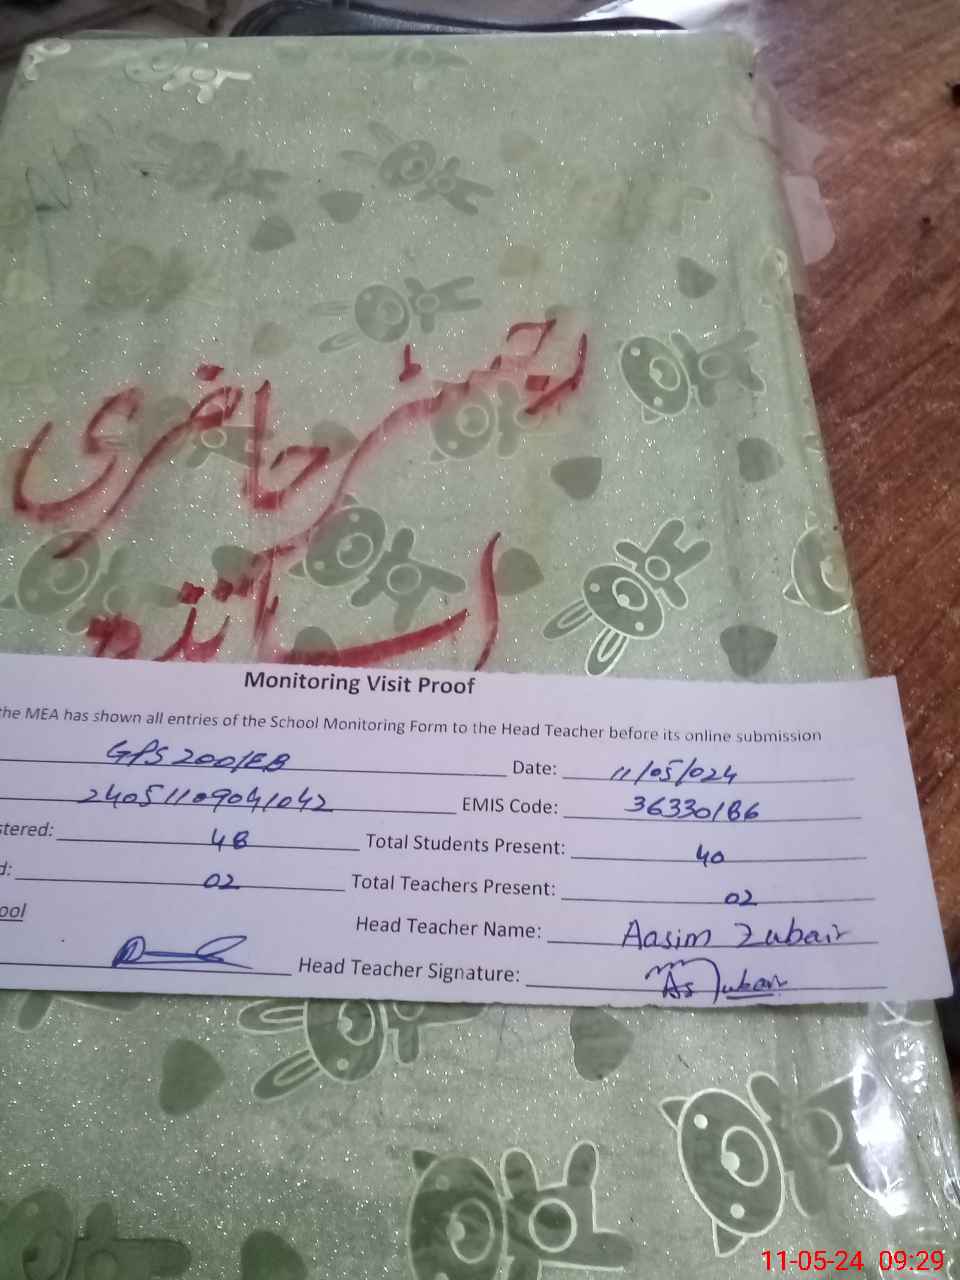 رجسٹر حاضری
اساتذہ
Monitoring Visit Proof
the MEA has shown all entries of the School Monitoring Form to the Head Teacher before its online submission
GPS 200/EB Date: 11/05/024
24051109041042 EMIS Code: 36330186
stered: 48 Total Students Present: 40
d: 02 Total Teachers Present: 02
ool Head Teacher Name: Aasim Zubair
Head Teacher Signature: As Zubair
11-05-24 09:29